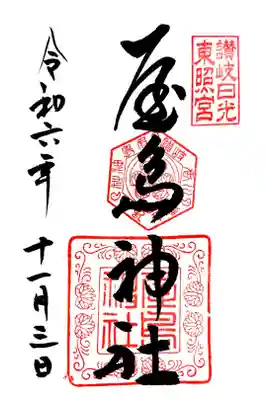 讃岐日光
東照宮
屋島神社
令和六年
十一月三日